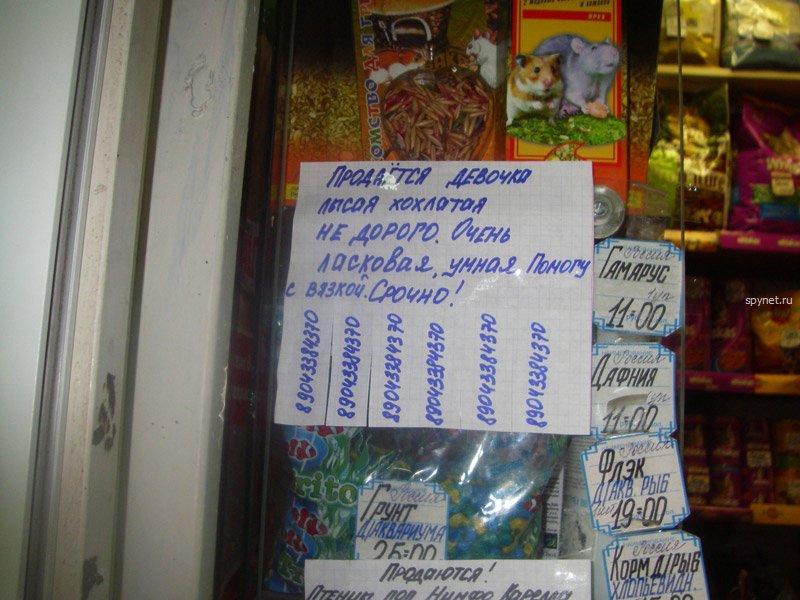 ПРОДАЁТСЯ ДЕВОЧКА
ЛЫСАЯ ХОХЛАТАЯ
НЕ ДОРОГО. ОЧЕНЬ
ЛАСКОВАЯ, УМНАЯ. ПОМОГУ
С ВЯЗКОЙ. СРОЧНО!
89043384370
89043384370
89043284370
89043384370
89043384370
89043384370
Россия
ГАМАРУС
1уп
11=00
Россия
ДАФНИЯ
1уп
11=00
Россия
ФЛЭК
Д/АКВ. РЫБ
19=00
Россия
КОРМ Д/РЫБ
ХЛОПЬЕВИДН.
rito
Россия
ГРУНТ
Д/АКВАРИУМА
25=00
ПРОДАЮТСЯ!
spynet.ru